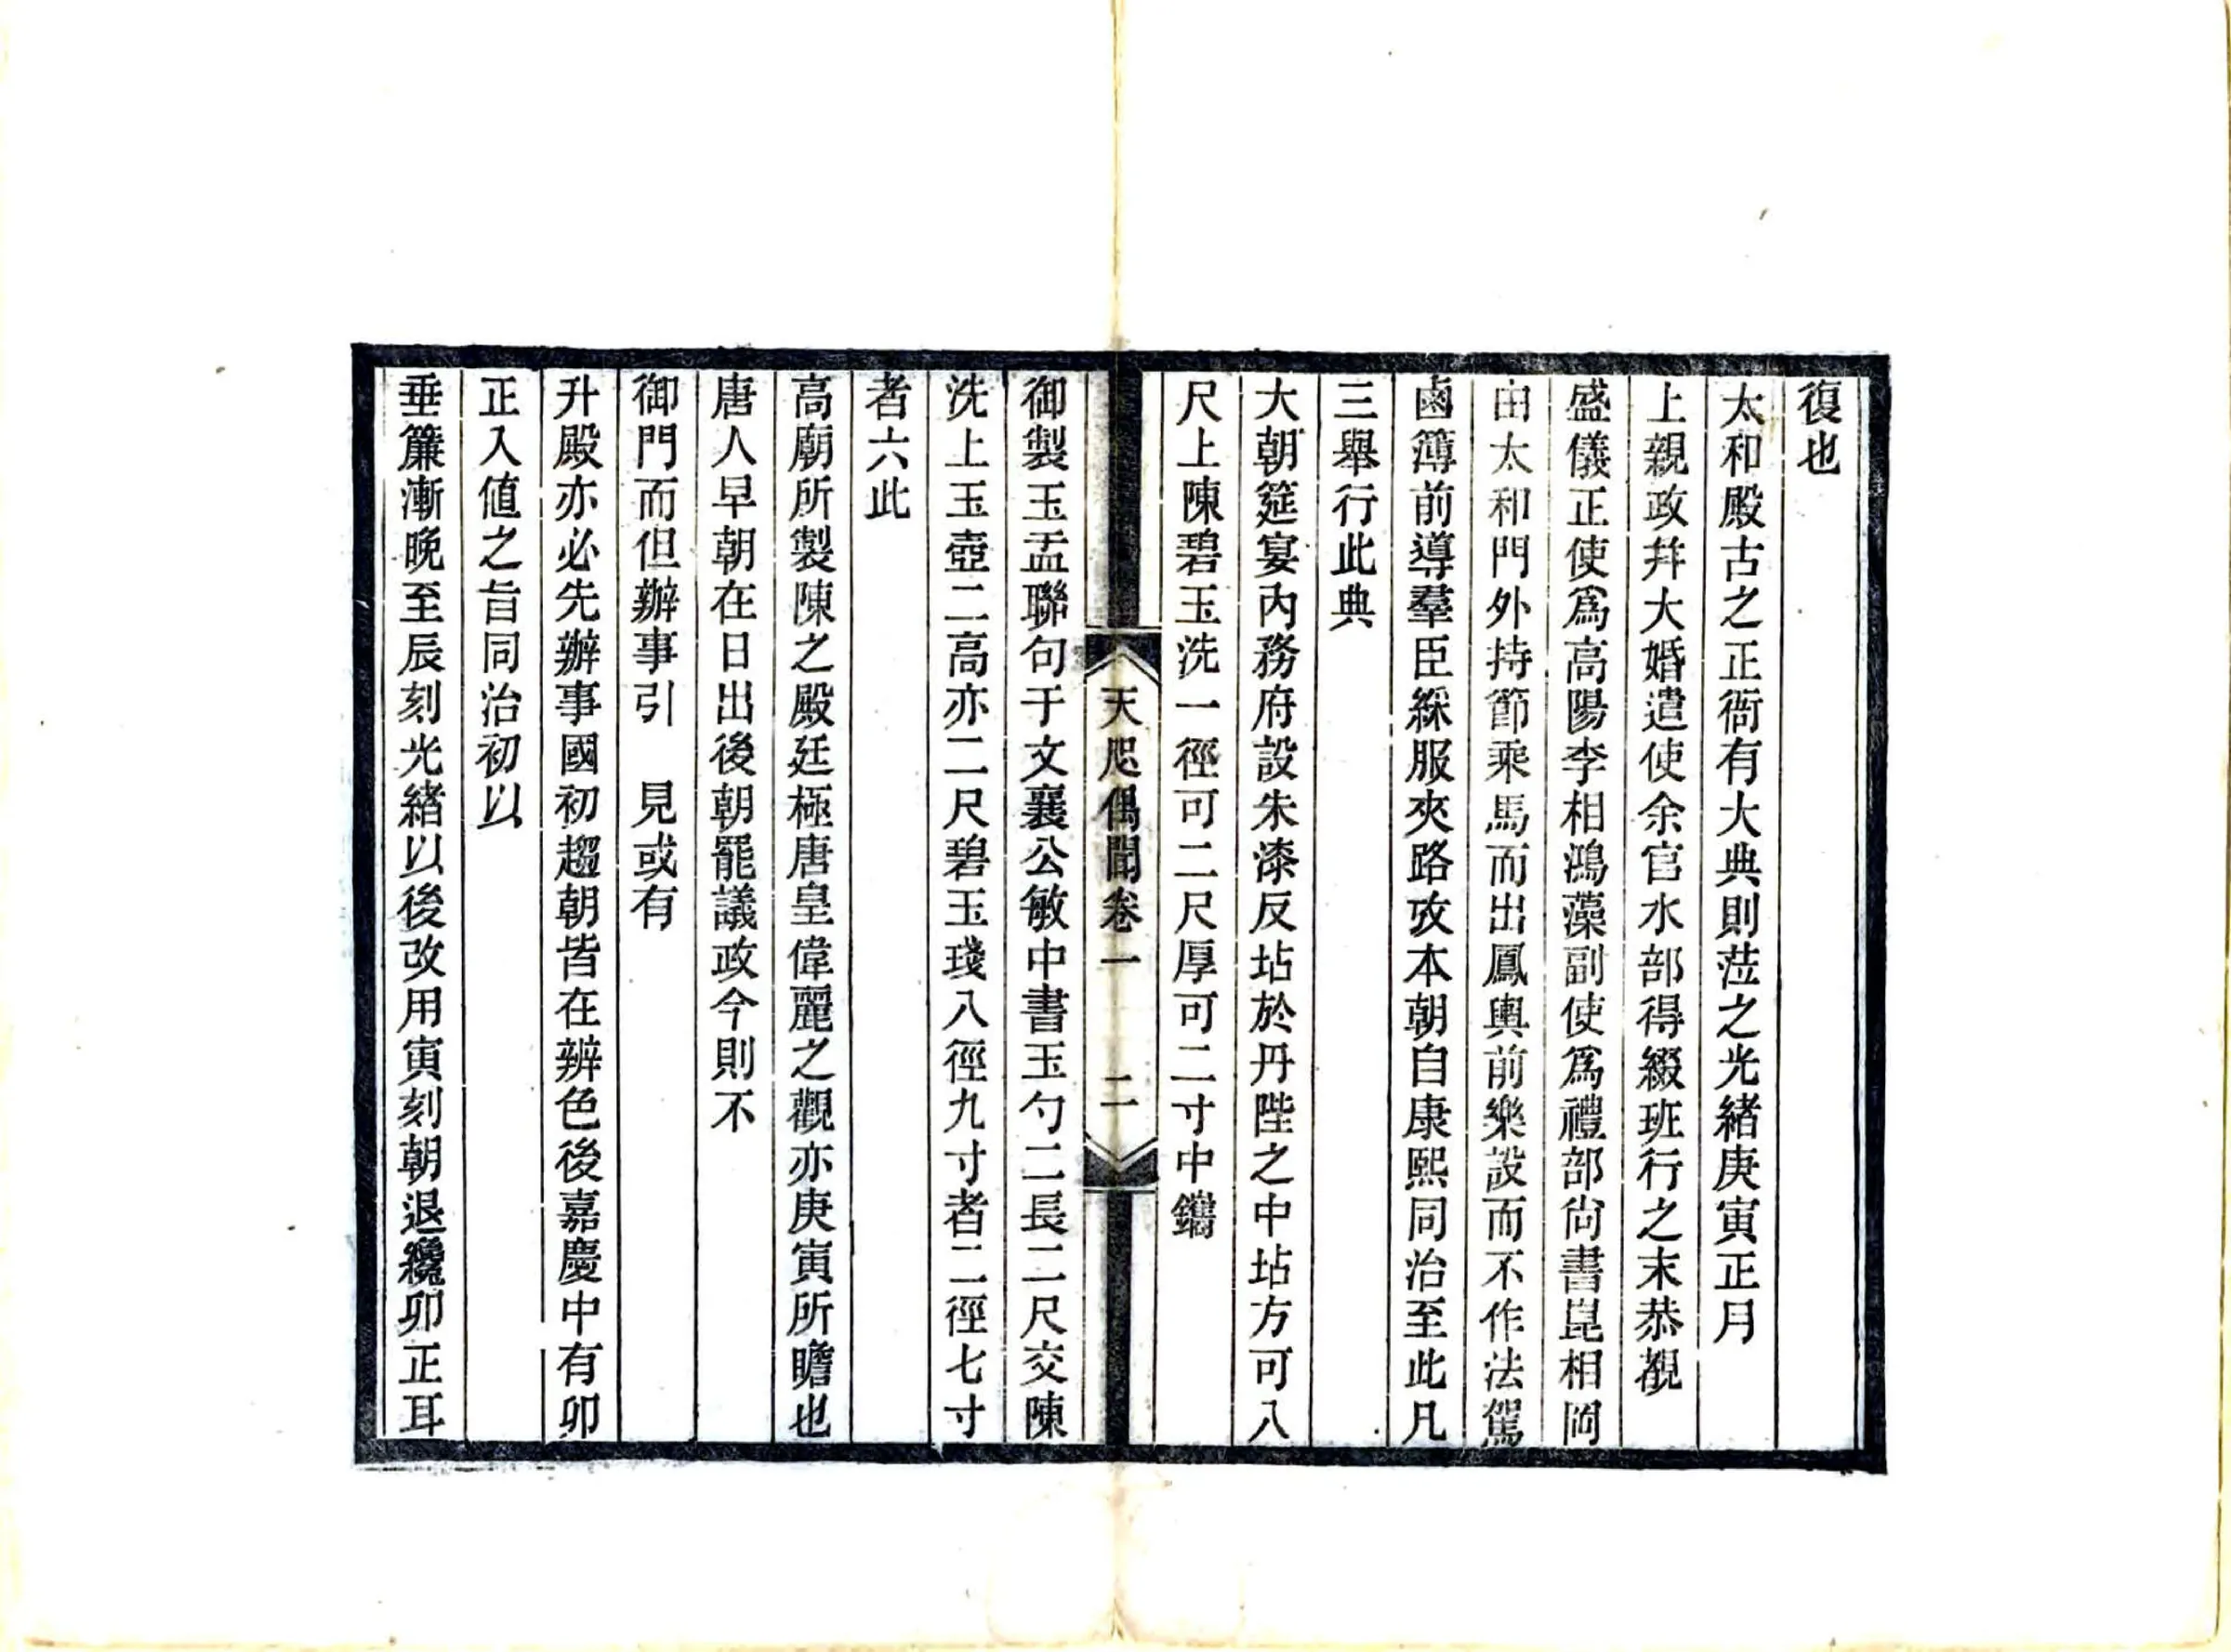 復也
太和殿古之正衙有大典則蒞之光緒庚寅正月
上親政幷大婚遣使余官水部得綴班行之末恭覩
盛儀正使爲高陽李相鴻藻副使爲禮部尙書崑相岡
由太和門外持節乘馬而出鳳輿前樂設而不作法駕
鹵簿前導羣臣綵服夾路攷本朝自康熙同治至此凡
三舉行此典
大朝筵宴內務府設朱漆反坫於丹陛之中坫方可八
尺上陳碧玉洗一徑可二尺厚可二寸中鐫
天咫偶聞卷一 二
御製玉盂聯句于文襄公敏中書玉勺二長二尺交陳
洗上玉壺二高亦二尺碧玉琖八徑九寸者二徑七寸
者六此
高廟所製陳之殿廷極唐皇偉麗之觀亦庚寅所瞻也
唐人早朝在日出後朝罷議政今則不
御門而但辦事引 見或有
升殿亦必先辦事國初趨朝皆在辨色後嘉慶中有卯
正入値之旨同治初以
垂簾漸晚至辰刻光緒以後改用寅刻朝退纔卯正耳